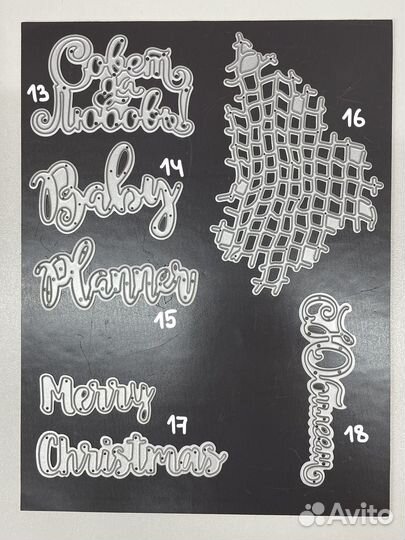 Совет
да
Любовь!
13
14
Baby
Planner
15
16
Merry
17
Christmas
С Юбилеем
18
Avito